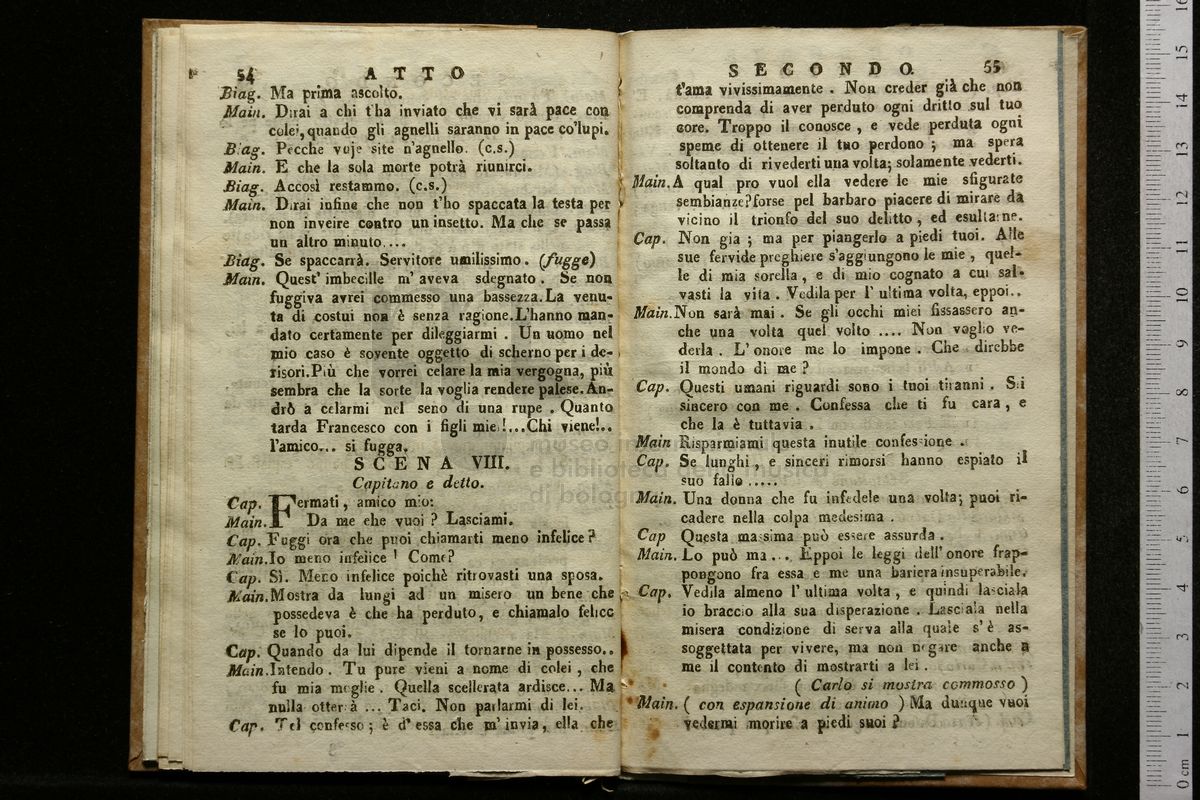 54 ATTO
Biag. Ma prima ascolto.
Main. Dirai a chi t'ha inviato che vi sarà pace con
colei, quando gli agnelli saranno in pace co'lupi.
Biag. Pecche vuje site n'agnello. (c.s.)
Main. E che la sola morte potrà riunirci.
Biag. Accosì restammo. (c.s.)
Main. Dirai infine che non t'ho spaccata la testa per
non inveire contro un insetto. Ma che se passa
un altro minuto....
Biag. Se spaccarrà. Servitore umilissimo. (fugge)
Main. Quest' imbecille m' aveva sdegnato. Se non
fuggiva avrei commesso una bassezza. La venu-
ta di costui non è senza ragione. L'hanno man-
dato certamente per dileggiarmi. Un uomo nel
mio caso è sovente oggetto di scherno per i de-
risori. Più che vorrei celare la mia vergogna, più
sembra che la sorte la voglia rendere palese. An-
drò a celarmi nel seno di una rupe. Quanto
tarda Francesco con i figli miei!...Chi viene!..
l'amico... si fugga.
SCENA VIII.
Capitano e detto.
Cap. Fermati, amico mio:
Main. Da me che vuoi? Lasciami.
Cap. Fuggi ora che puoi chiamarti meno infelice?
Main. Io meno infelice! Come?
Cap. Sì. Meno infelice poichè ritrovasti una sposa.
Main. Mostra da lungi ad un misero un bene che
possedeva è che ha perduto, e chiamalo felice
se lo puoi.
Cap. Quando da lui dipende il tornarne in possesso..
Main. Intendo. Tu pure vieni a nome di colei, che
fu mia moglie. Quella scellerata ardisce... Ma
nulla otterrà ... Taci. Non parlarmi di lei.
Cap. Tel confesso; è d' essa che m' invia, ella che
SECONDO. 55
t'ama vivissimamente. Non creder già che non
comprenda di aver perduto ogni dritto sul tuo
core. Troppo il conosce, e vede perduta ogni
speme di ottenere il tuo perdono; ma spera
soltanto di rivederti una volta; solamente vederti.
Main. A qual pro vuol ella vedere le mie sfigurate
sembianze? forse pel barbaro piacere di mirare da
vicino il trionfo del suo delitto, ed esultarne.
Cap. Non gia; ma per piangerlo a piedi tuoi. Alle
sue fervide preghiere s'aggiungono le mie, quel-
le di mia sorella, e di mio cognato a cui sal-
vasti la vita. Vedila per l' ultima volta, eppoi..
Main. Non sarà mai. Se gli occhi miei fissassero an-
che una volta quel volto .... Non voglio ve-
derla. L' onore me lo impone. Che direbbe
il mondo di me?
Cap. Questi umani riguardi sono i tuoi tiranni. Sii
sincero con me. Confessa che ti fu cara, e
che la è tuttavia.
Main Risparmiami questa inutile confessione.
Cap. Se lunghi, e sinceri rimorsi hanno espiato il
suo fallo.....
Main. Una donna che fu infedele una volta; puoi ri-
cadere nella colpa medesima.
Cap Questa massima può essere assurda.
Main. Lo può ma... Eppoi le leggi dell' onore frap-
pongono fra essa e me una bariera insuperabile.
Cap. Vedila almeno l' ultima volta, e quindi lasciala
io braccio alla sua disperazione. Lasciala nella
misera condizione di serva alla quale s' è as-
soggettata per vivere, ma non negare anche a
me il contento di mostrarti a lei.
( Carlo si mostra commosso )
Main. ( con espansione di animo ) Ma dunque vuoi
vedermi morire a piedi suoi?